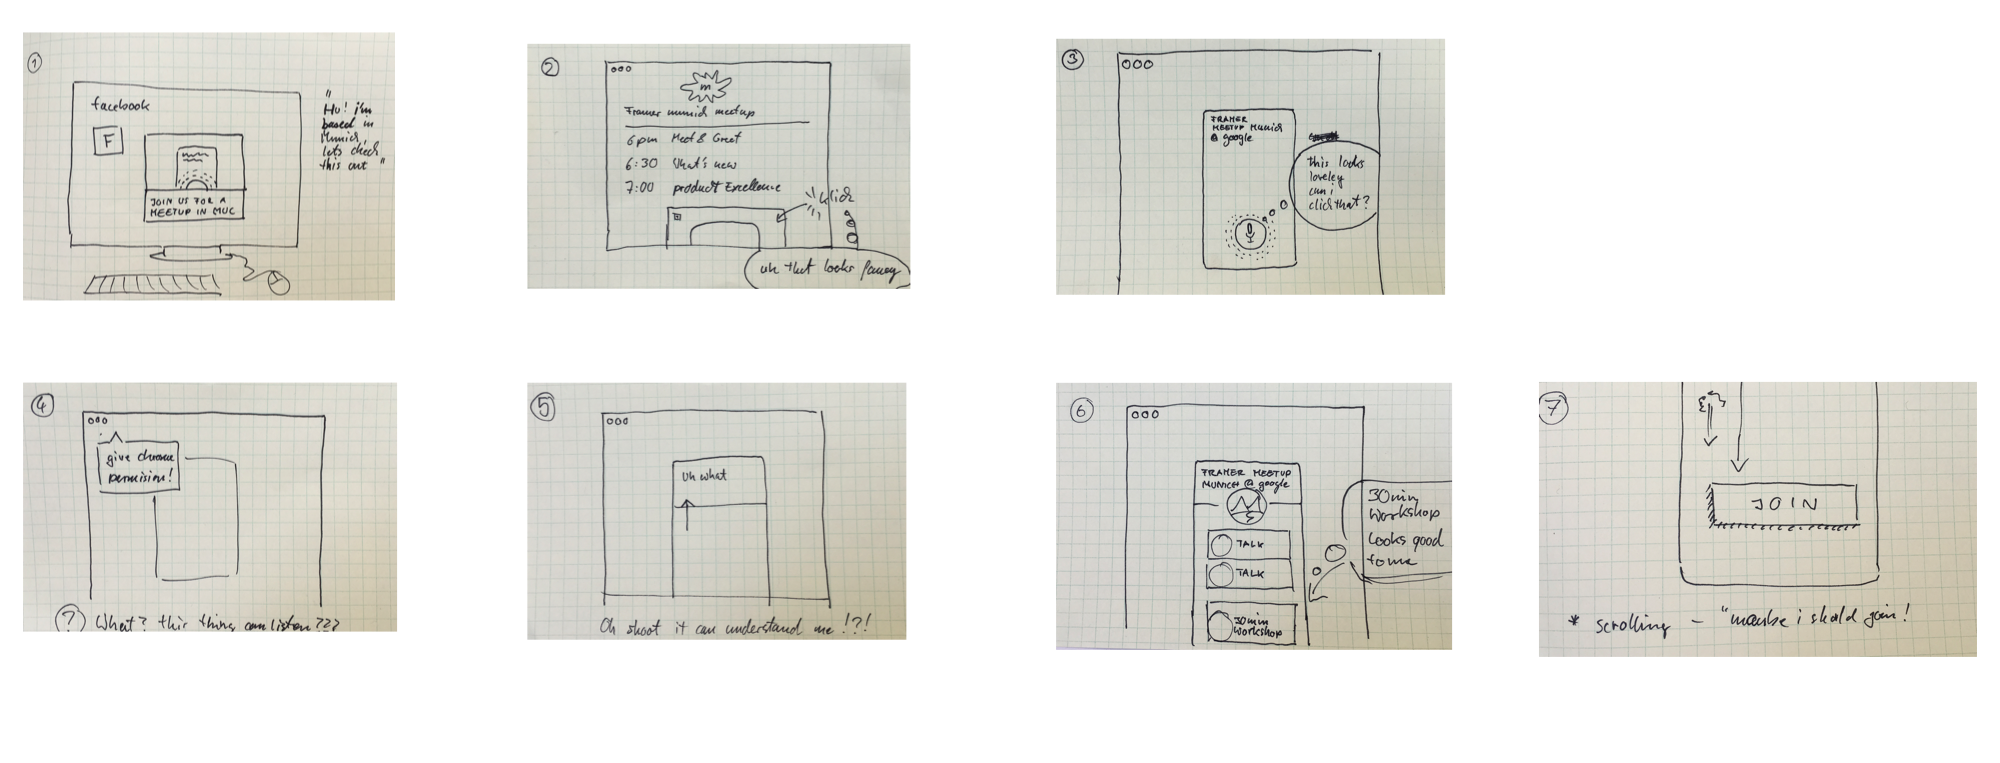 1
facebook
F
JOIN US FOR A
MEETUP IN MUC
"
Hu! i'm
based in
Munich,
lets check
this out "
2
m
Framer munich meetup
6pm Meet & Greet
6:30 What's new
7:00 product Excellence
klick
uh that looks fancy
3
FRAMER
MEETUP Munich
@ google
this looks
loveley
can i
click that?
4
give chrome
permision!
? What? this thing can listen ???
5
Uh what
Oh shoot it can understand me !?!
6
FRAMER MEETUP
MUNICH @ google
TALK
TALK
30min
workshop
30min
Workshop
Looks good
to me
7
JOIN
* scrolling – "maybe i should join!